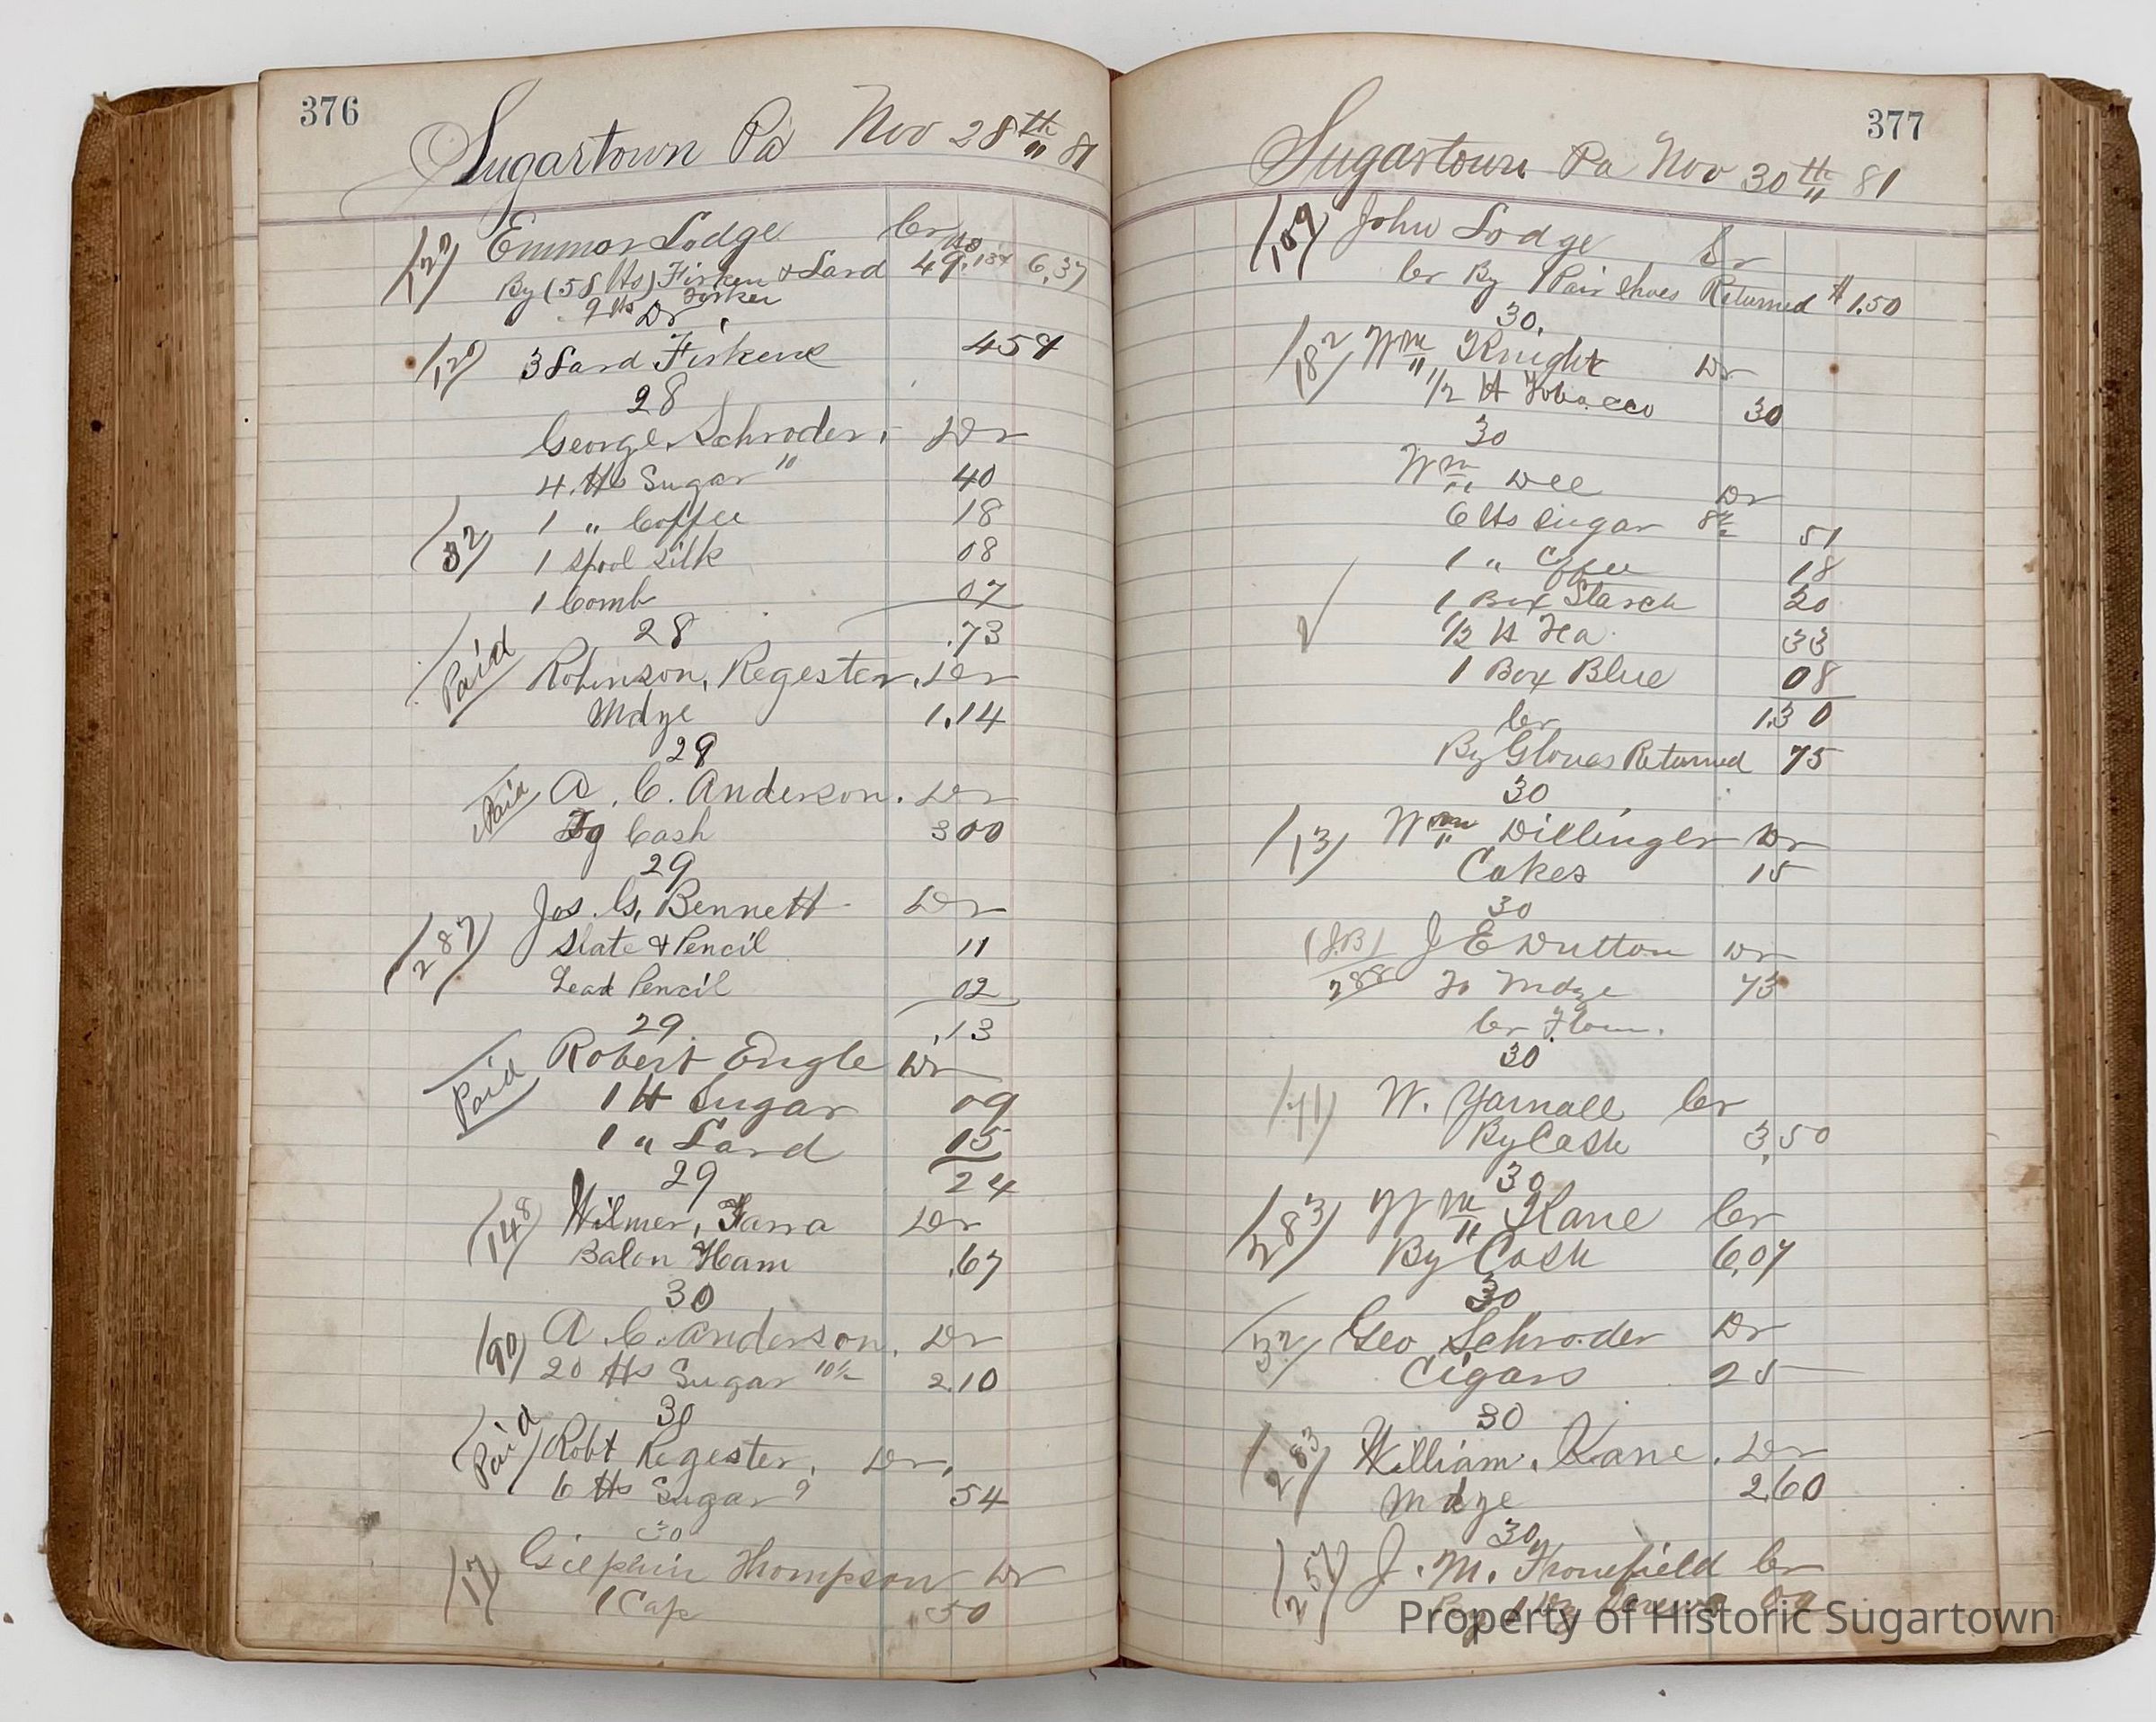 376
Sugartown Pa Nov 28th 81
127 Emmor Lodge Cr
By (58 lbs) Firken & Lard 49 lbs 13¢ 6.37
9 lbs Firken
Dr
127 3 Lard Firkens 459
28
George Schroder. Dr
4 lbs Sugar 10 40
1 " Coffee 18
32 1 Spool Silk 08
1 Comb 07
28 .73
Paid Robinson, Regester. Dr
Mdze 1.14
29
Paid A. C. Anderson. Dr
To Cash 300
29
Jos. G. Bennett Dr
287 Slate & Pencil 11
Lead Pencil 02
29 .13
Paid Robert Engle Dr
1 lb Sugar 09
1 " Lard 15
29 24
148 Wilmer, Farra Dr
Balon Ham .67
30
90 A. C. Anderson. Dr
20 lbs Sugar 10½ 2.10
30
Paid Robt Regester. Dr.
6 lbs Sugar 9 54
30
17 Gilphin Thompson Dr
1 Cap 50
377
Sugartown Pa Nov 30th 81
109 John Lodge Dr
Cr By 1 Pair Shoes Returned $1.50
30.
182 Wm Knight Dr
1/2 lb Tobacco 30
30
Wm Dee Dr
6 lbs Sugar 8½ 51
1 " Coffee 18
1 Box Starch 20
½ lb Tea 33
1 Box Blue 08
Cr 1.30
By Gloves Returned 75
30
13 Wm Dillinger Dr
Cakes 15
30
(J.B) J E Dutton Dr
288 To Mdze 73
Cr Flour.
30
71 W. Yarnall Cr
By Cash 3.50
30
283 Wm Kane Cr
By Cash 6.07
30
32 Geo Schroder Dr
Cigars 25
30
283 William. Kane. Dr
Mdze 2.60
30
257 J. M. Fronefield Cr
By 1
Property of Historic Sugartown